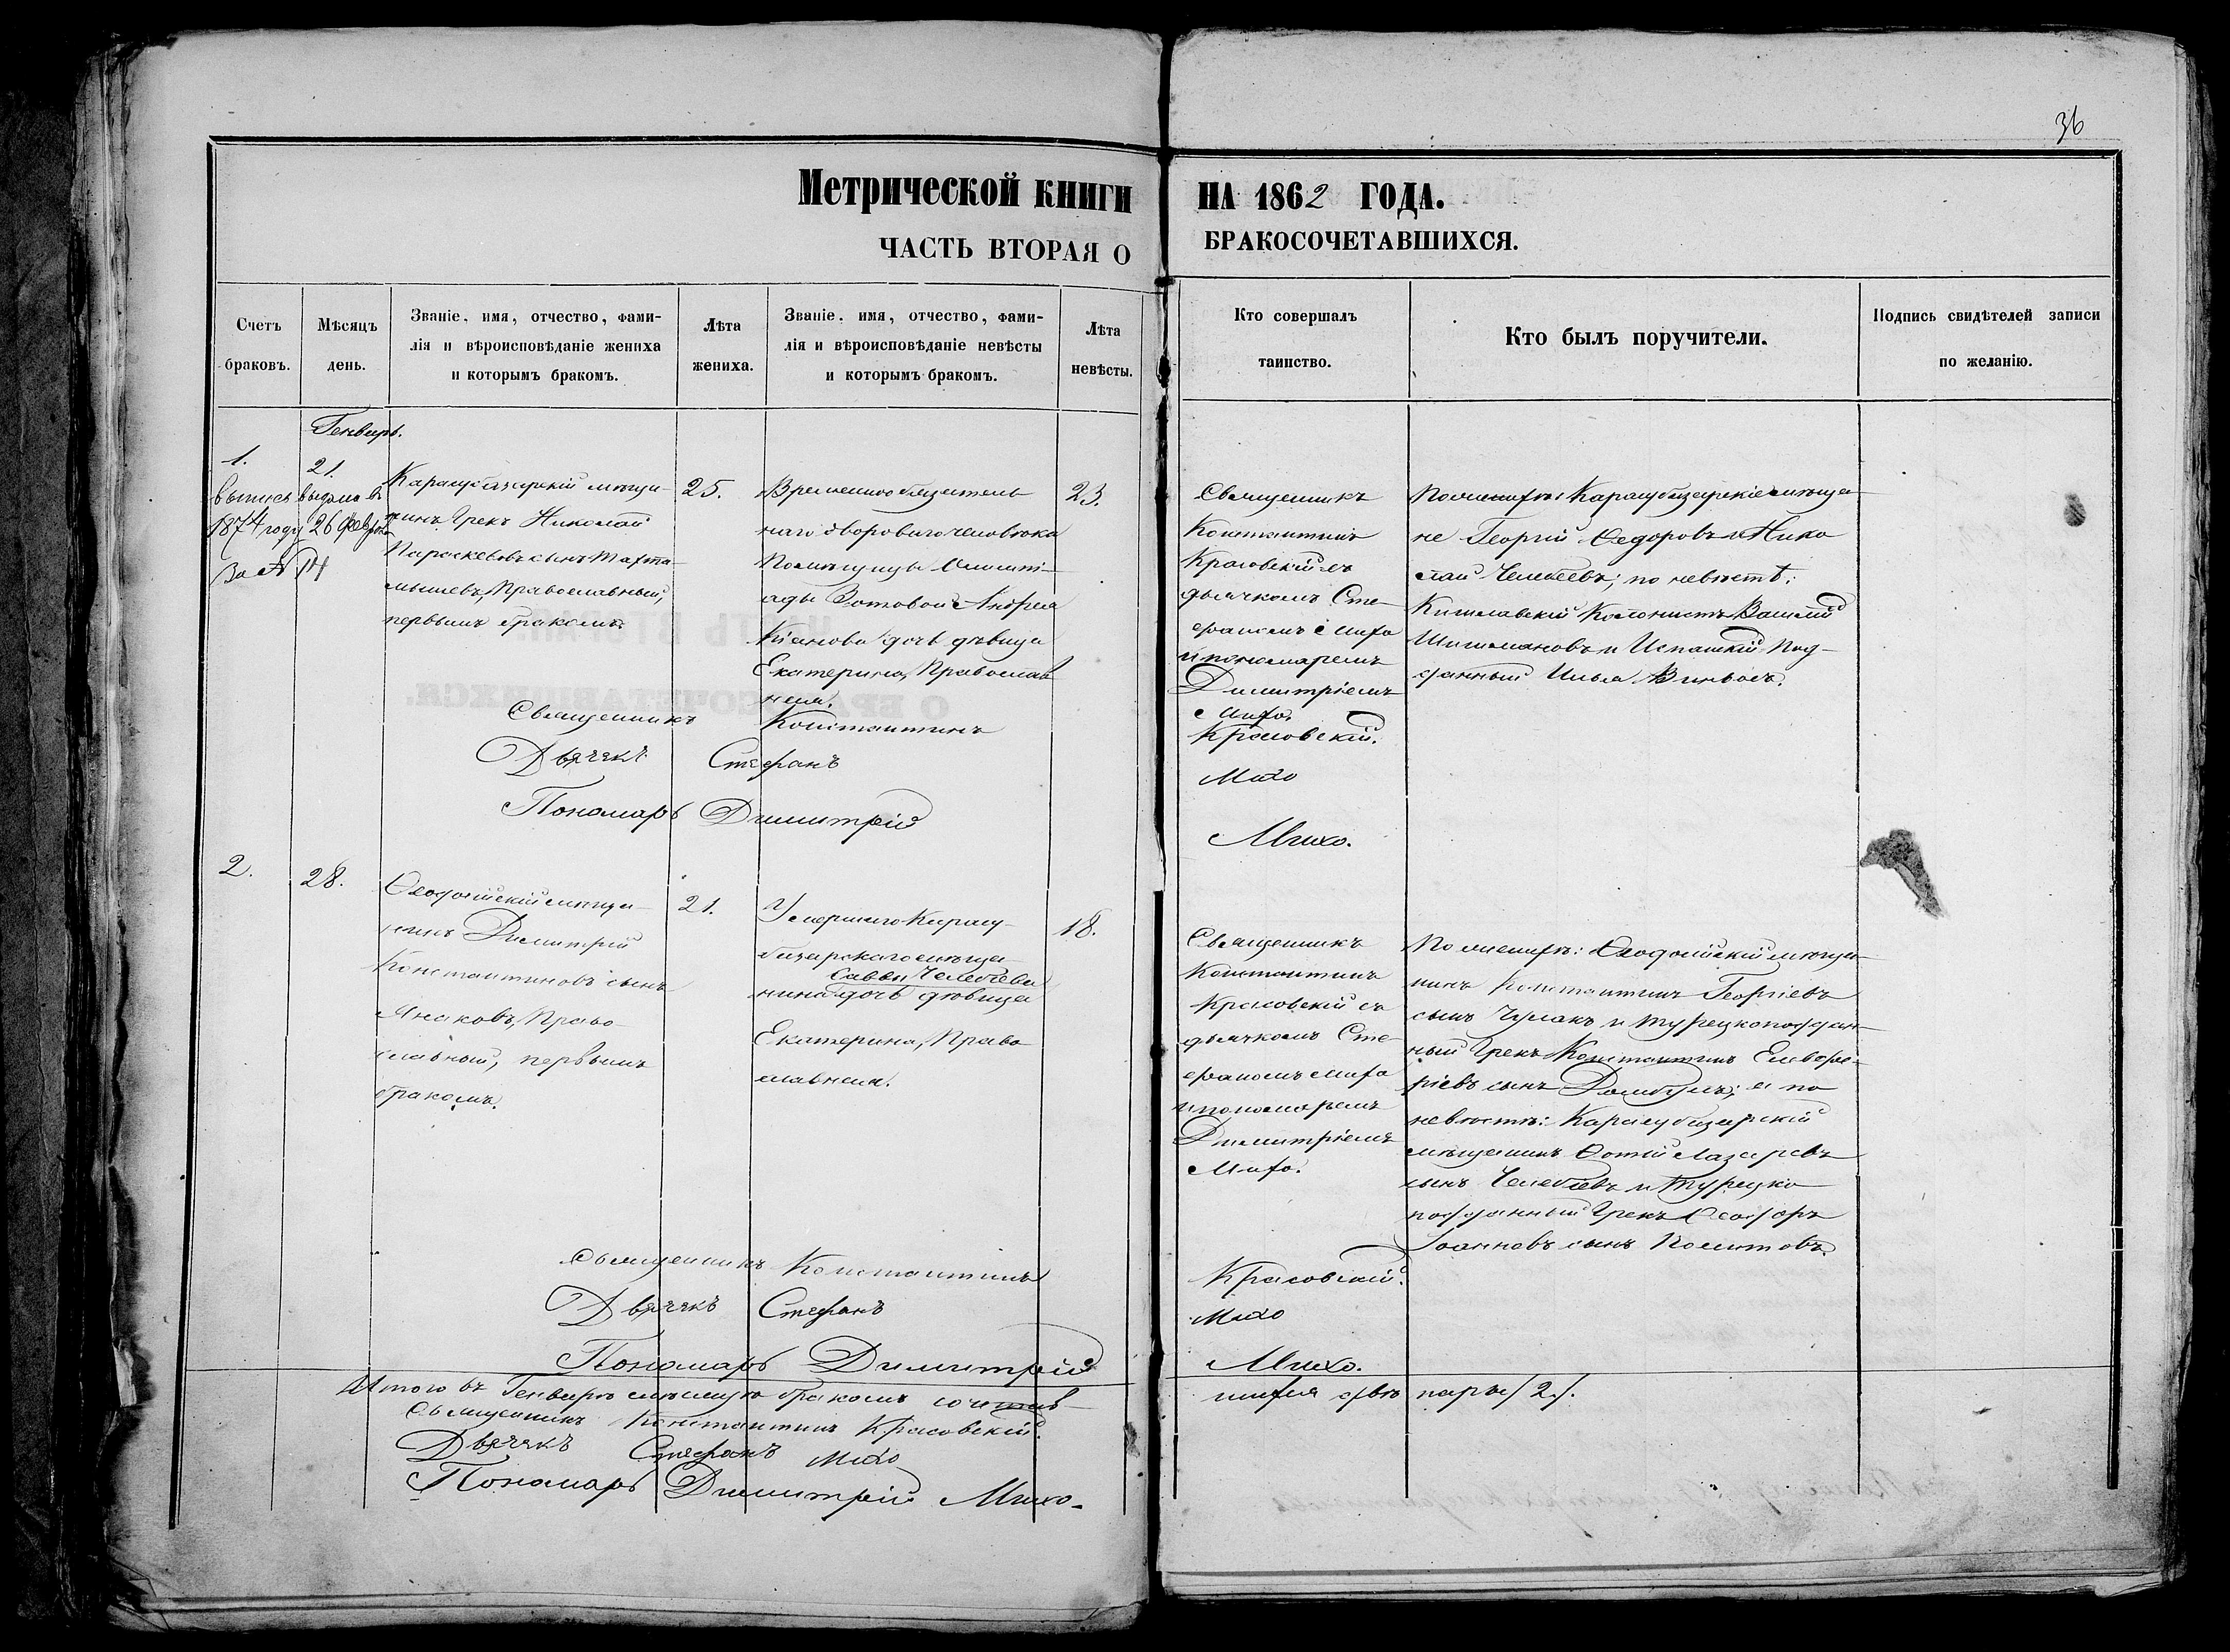 36
Метрической книги на 1862 года.
ЧАСТЬ ВТОРАЯ О БРАКОСОЧЕТАВШИХСЯ.
Счетъ браковъ.
Мѣсяцъ день.
Званіе, имя, отчество, фами-
лія и вѣроисповѣданіе жениха
и которымъ бракомъ.
Лѣта жениха.
Званіе, имя, отчество, фами-
лія и вѣроисповѣданіе невѣсты
и которымъ бракомъ.
Лѣта невѣсты.
Кто совершалъ
таинство.
Кто былъ поручители.
Подпись свидѣтелей записи
по желанію.
Генварь.
1.
21.
выпись выдана въ
1874 году 26 февраля
за № 14
Карасубазарскій мѣща-
нинъ Грекъ Николай
Параскевовъ сынъ Тахта-
мышевъ, Православный,
первымъ бракомъ.
25.
Временнообязатель-
наго двороваго человѣка
Помѣщицы
Зотовой Андрея
дочь дѣвица
Екатерина, Православ
ная.
23.
Священникъ
Константинъ
Красовскій съ
дьячкомъ Сте-
фаномъ Михо
и пономаремъ
Димитріемъ
Михо.
По женихѣ: Карасубазарскіе мѣща-
не Георгій Ѳедоровъ и Нико
лай Челебеевъ; по невѣстѣ:
Кишлавскій Колонистъ Василій
Шишмановъ и Испанскій Под-
данный Илья
Священникъ Константинъ Красовскій.
Дьячекъ Стефанъ Михо
Пономарь Димитрій Михо.
2.
28.
Ѳеодосійскій мѣща-
нинъ Димитрій
Константиновъ сынъ
Янаковъ, Право-
славный, первымъ
бракомъ.
21.
Умершаго Карасу-
базарскаго мѣща-
Саввы Челебеева
нина дочь дѣвица
Екатерина, Право-
славная.
18.
Священникъ
Константинъ
Красовскій съ
дьячкомъ Сте-
фаномъ Михо
и пономаремъ
Димитріемъ
Михо.
По женихѣ: Ѳеодосійскій мѣща-
нинъ Константинъ Георгіевъ
сынъ Чулакъ и турецкоподдан-
ный Грекъ Константинъ Елевфе-
ріевъ сынъ а по
невѣстѣ: Карасубазарскій
мѣщанинъ Фотій Лазаревъ
сынъ Челебеевъ и Турецко
подданный Грекъ Ѳеодоръ
Іоанновъ сынъ Политовъ.
Священникъ Константинъ Красовскій.
Дьячекъ Стефанъ Михо
Пономарь Димитрій Михо.
Итого въ Генварѣ мѣсяцѣ бракомъ сочетав-
шихся двѣ пары /2/.
Священникъ Константинъ Красовскій.
Дьячекъ Стефанъ Михо
Пономарь Димитрій Михо.